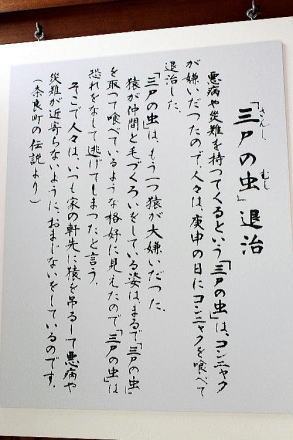 「三尸の虫」退治
さんし むし
悪病や災難を持つてくるという「三尸の虫」は、コンニャク
が嫌いだつたので、人々は、庚申の日にコンニャクを喰べて
退治した。
「三尸の虫」は、もう一つ猿が大嫌いだつた。
猿が仲間と毛づくろいをしている姿は、まるで「三尸の虫」
を取つて喰べているような格好に見えたので「三尸の虫」は
恐れをなして逃げてしまつたと言う。
そこで人々は、いつも家の軒先に猿を吊るして悪病や
災難が近寄らないように、おまじないをしているのです。
(奈良町の伝説より)